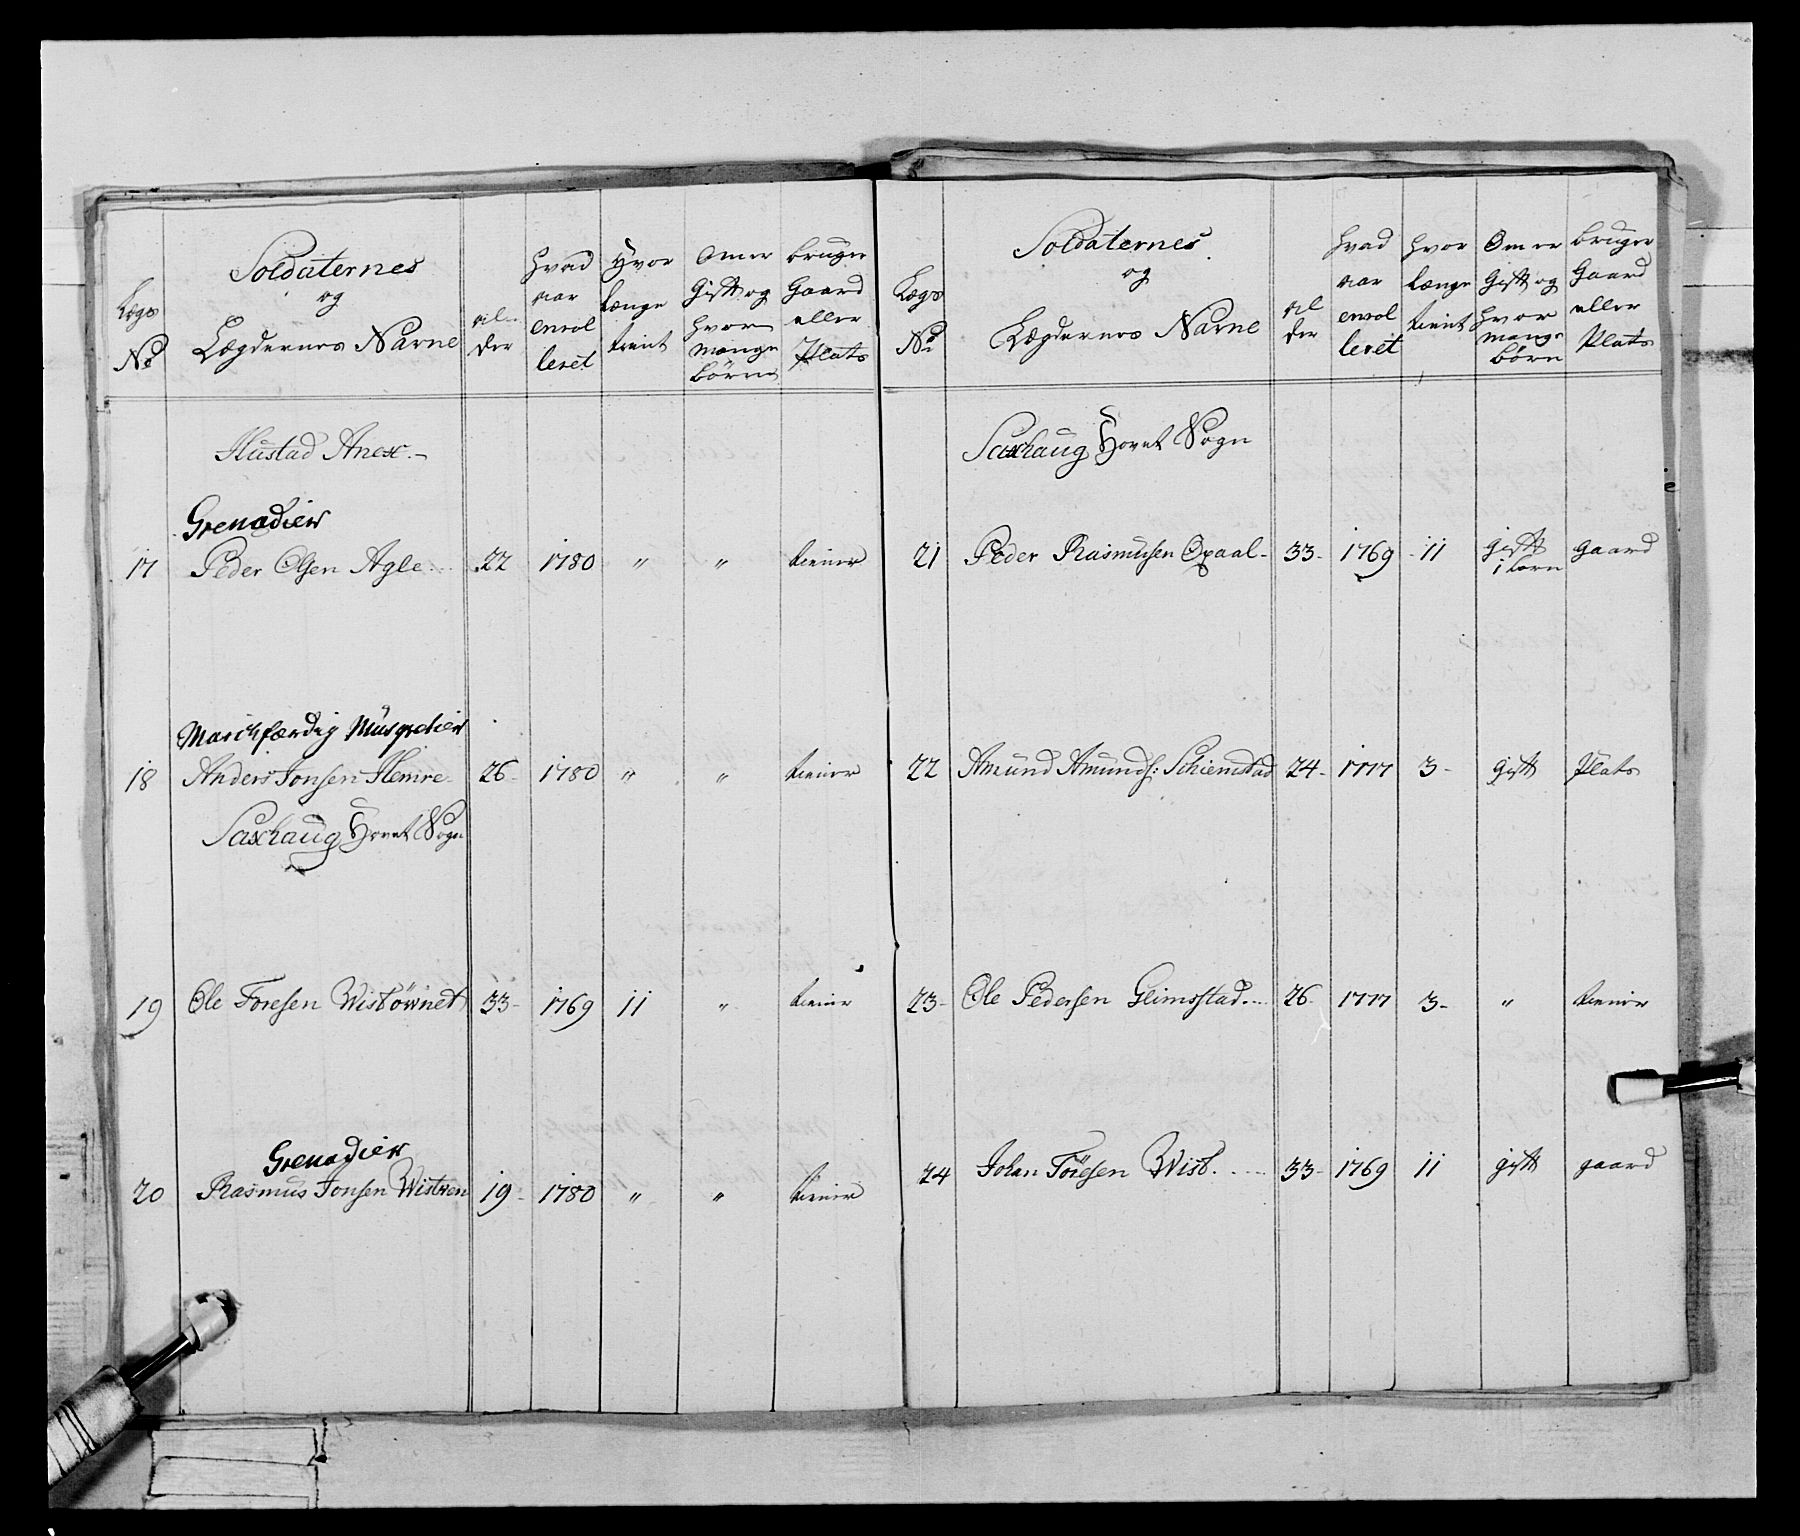 Lægs
No
Soldaternes
og
Lægdernes Navne
al-
der
hvad
aar
enrol
leret
Hvor
længe
tient
Om er
Gift og
hvor
mange
børn
bruger
Gaard
eller
Plats
Hustad Anex.-
Grenadier
17 Peder Olsen Agle 22 1780 " " tiener
Marschfærdig Musqvetier
18 Anders Jonsen Hemre 26 1780 " " tiener
Saxhaug Hovet Sogn
19 Ole Toresen Wistørnet 33- 1769 11 " tiener
Grenadier
20 Rasmus Jonsen Wistven 19- 1780 " " tiener
Lægs
No
Soldaternes
og
Lægdernes Navne
al
der
hvad
aar
enrol
leret
hvor
længe
tient
Om er
Gift og
hvor
mange
børn
bruger
Gaard
eller
Plats
Saxhaug Hovet Sogn
21 Peder Rasmusen Opaal- 33- 1769 11 gift 1 barn gaard
22 Amund Amunds: Schiemstad 24- 1777 3- gift Plats
23- Ole Pedersen Geimsstad.... 26 1777 3- " tiener
24 Johan Tøresen Wist. 33- 1769 11 gift gaard